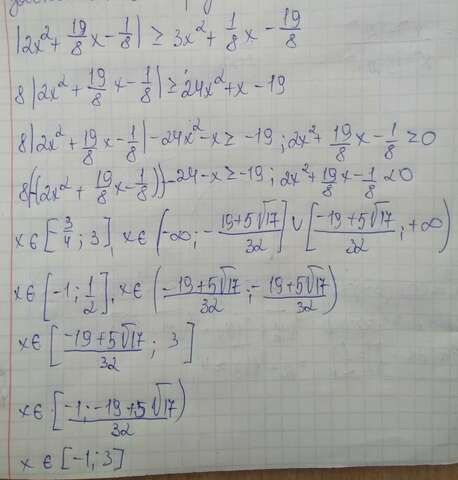 |2x² + 19/8 x - 1/8| ≥ 3x² + 1/8 x - 19/8
8|2x² + 19/8 x - 1/8| ≥ 24x² + x - 19
8|2x² + 19/8 x - 1/8| - 24x² - x ≥ -19; 2x² + 19/8 x - 1/8 ≥ 0
8(-(2x² + 19/8 x - 1/8)) - 24 - x ≥ -19; 2x² + 19/8 x - 1/8 < 0
x ∈ [-3/4; 3], x ∈ (-∞, -(19+5√17)/32] ∪ [(-19+5√17)/32; +∞)
x ∈ [-1; 1/2], x ∈ (-(19+5√17)/32; -(19+5√17)/32)
x ∈ [(-19+5√17)/32; 3]
x ∈ [-1; (-19+5√17)/32)
x ∈ [-1; 3]